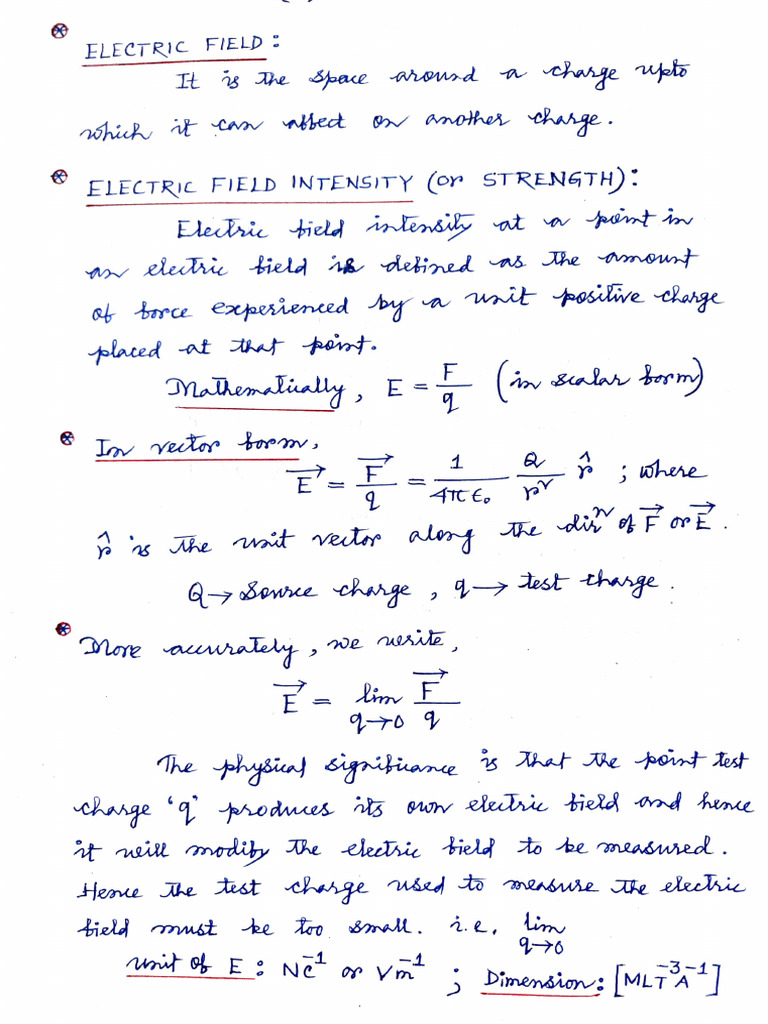 ELECTRIC FIELD :
It is the space around a charge upto
which it can affect on another charge.
ELECTRIC FIELD INTENSITY (or STRENGTH) :
Electric field intensity at a point in
an electric field is defined as the amount
of force experienced by a unit positive charge
placed at that point.
Mathematically, E = F/q (in scalar form)
In vector form,
E⃗ = F⃗/q = 1/4πϵ₀ Q/r² r̂ ; where
r̂ is the unit vector along the dirⁿ of F⃗ or E⃗.
Q → Source charge, q → test charge.
More accurately, we write,
E⃗ = lim q→0 F⃗/q
The physical significance is that the point test
charge 'q' produces its own electric field and hence
it will modify the electric field to be measured.
Hence the test charge used to measure the electric
field must be too small. i.e. lim q→0
Unit of E : NC⁻¹ or Vm⁻¹ ; Dimension : [MLT⁻³A⁻¹]